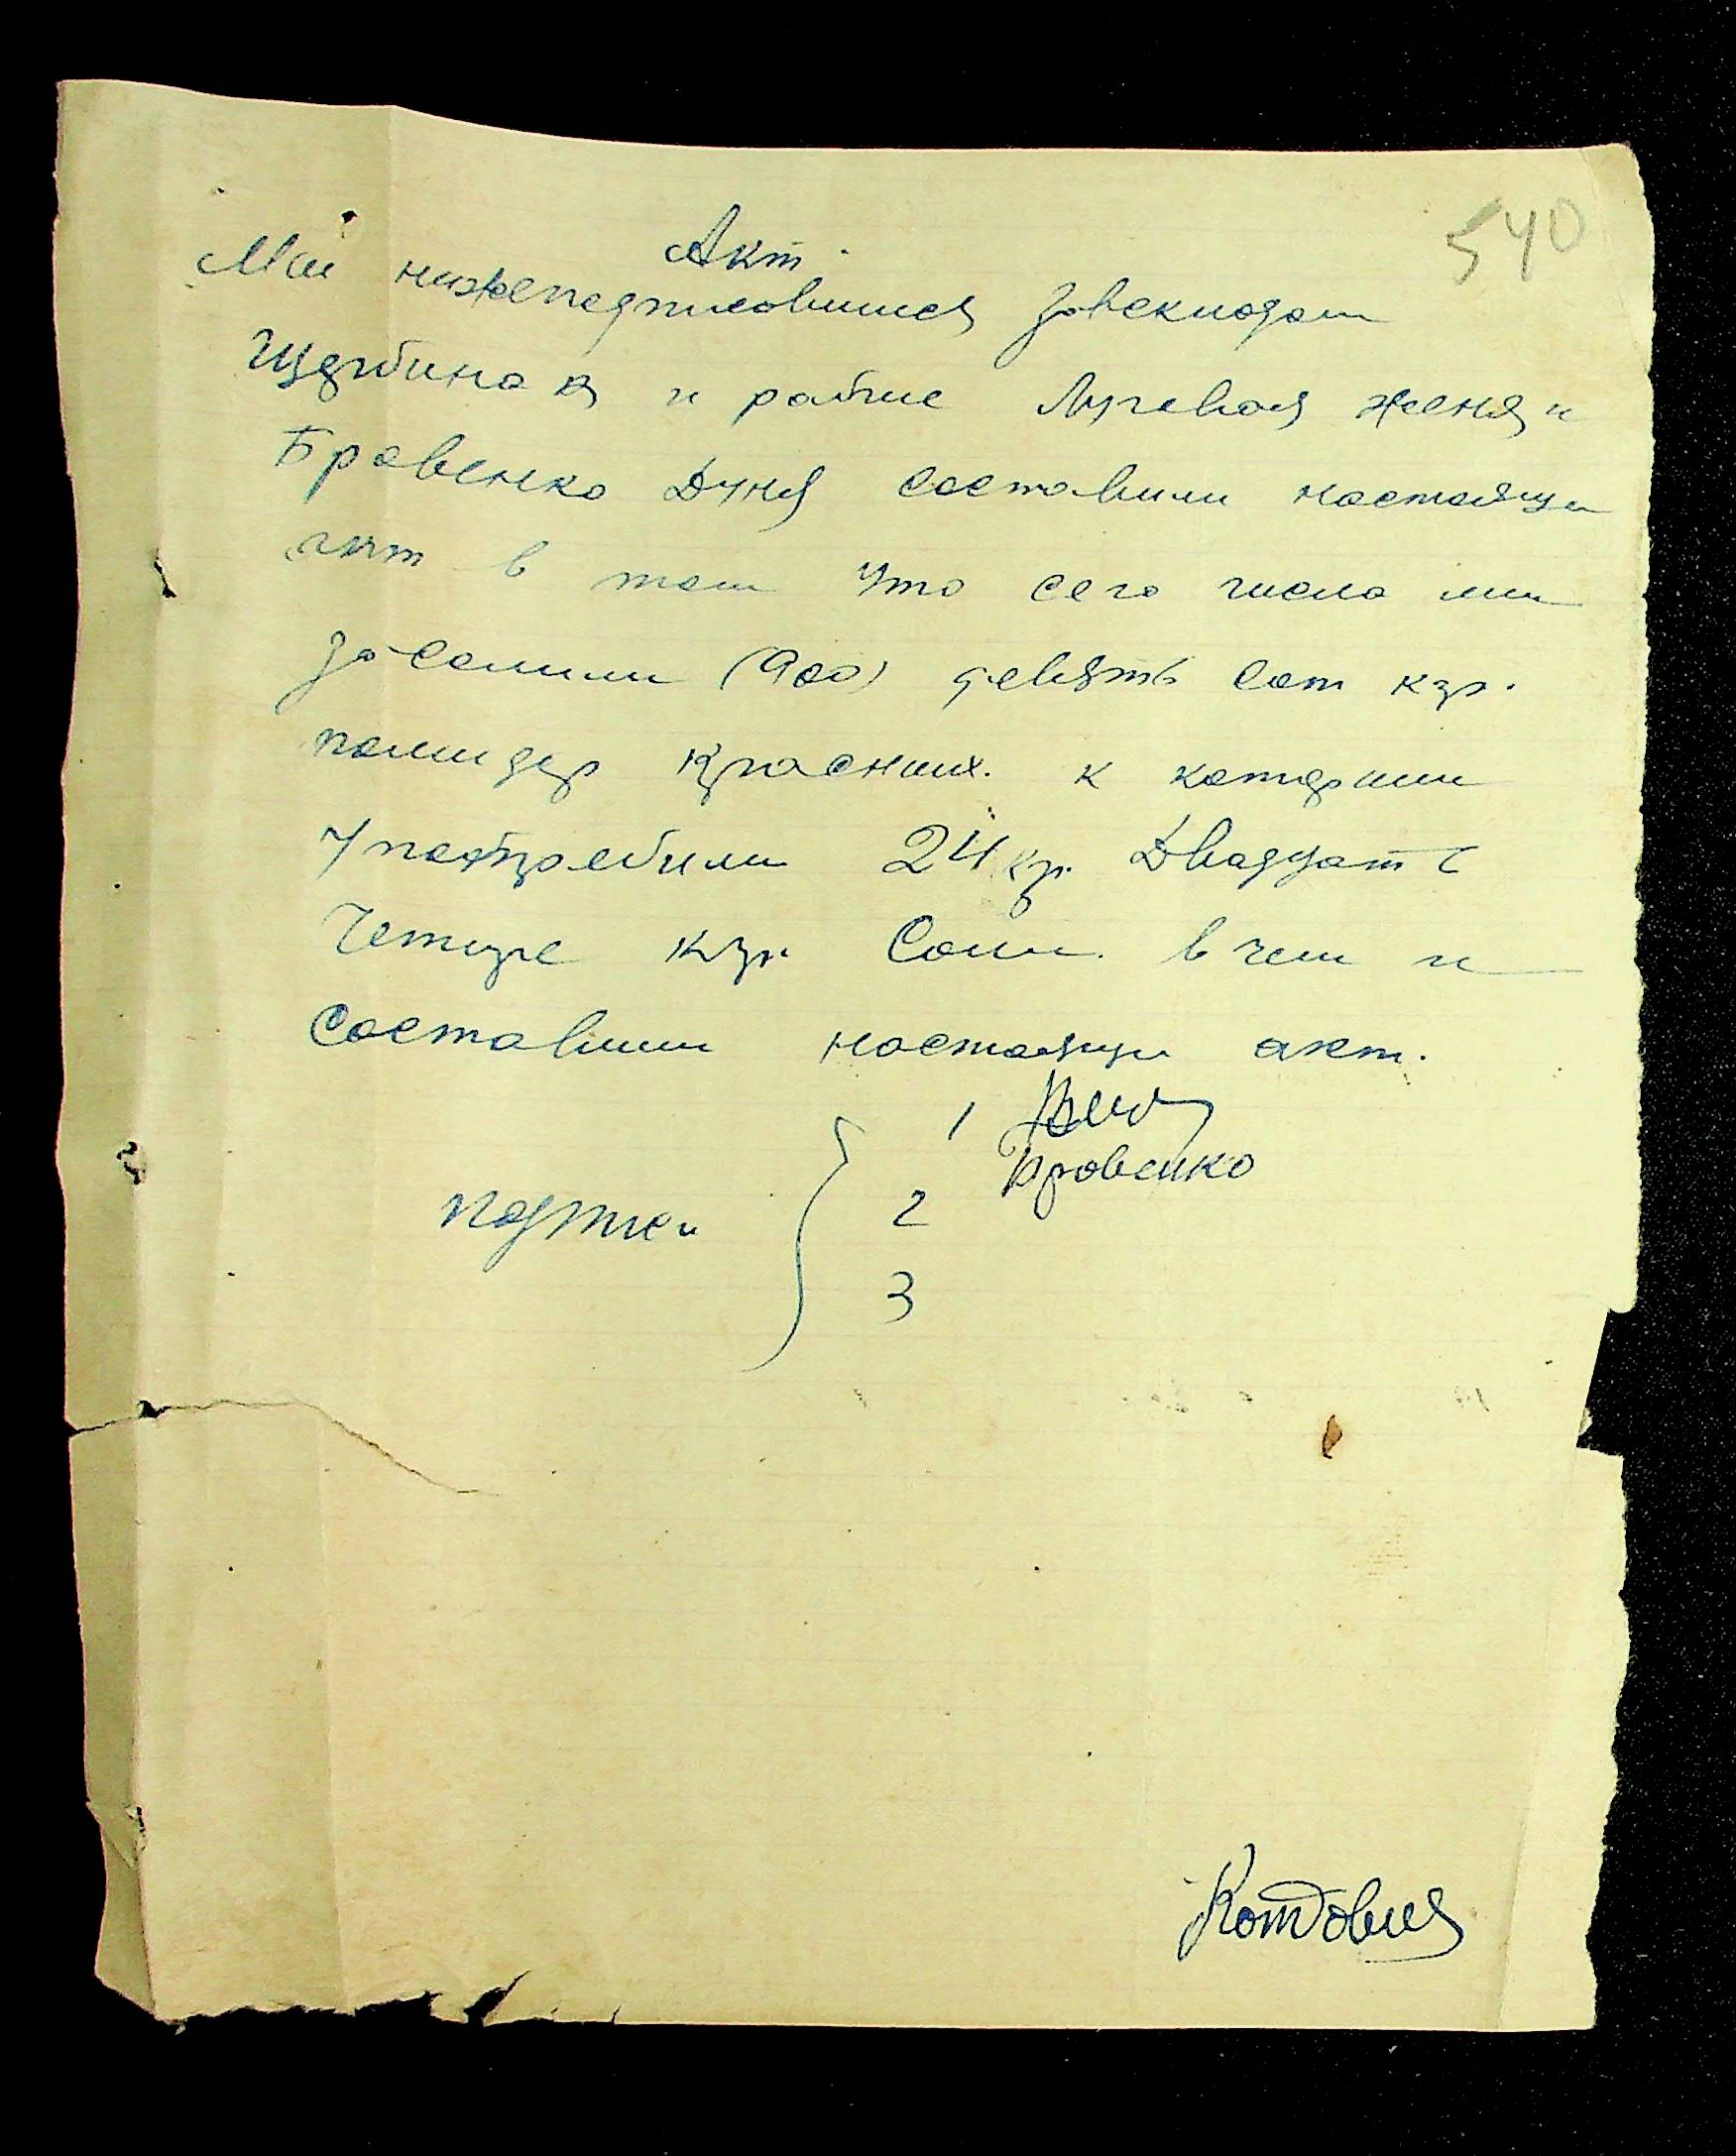 540
Акт.
Ми нижеподписовшиися Завскладом
Щербина В и рабчие Лугевая Женя и
Бровенко Дуня составили настоящи
акт в том что сего числа ми
засолили (900) девять сот кгр.
помидор красних. к котором
употребили 24 кгр. Двадцать
Четире кгр. Соли. в чем и
Составили настоящи акт.
1
Бровенко
подписи 2
3